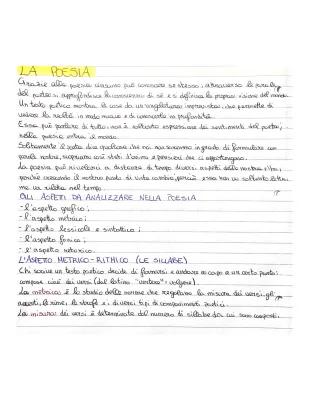 LA POESIA
Grazie alla poesia ciascuno può conoscere se stesso; attraverso le parole
del poeta si approfondisce la conoscenza di sé e si definisce la propria visione del mondo.
Un testo poetico mostra le cose da un'angolatura imprevista, che permette di
vedere la realtà in modo nuovo e di conoscerla in profondità.
Essa può parlare di tutto: non è soltanto espressione dei sentimenti del poeta;
nella poesia entra il mondo.
Solitamente il poeta dice qualcosa che noi non saremmo in grado di formulare con
parole nostre, scopriamo così stati d'animo e pensieri che ci appartengono.
La poesia può rivelarci a distanza di tempo diversi aspetti della nostra vita,
perché crescendo il nostro punto di vista cambia, perciò essa non va soltanto letta,
ma va riletta nel tempo.
GLI ASPETTI DA ANALIZZARE NELLA POESIA
- l'aspetto grafico;
- l'aspetto metrico;
- l'aspetto lessicale e sintattico;
- l'aspetto fonico;
- l'aspetto retorico.
L'ASPETTO METRICO-RITMICO (LE SILLABE)
Chi scrive un testo poetico decide di fermarsi e andare a capo a un certo punto:
compone così dei versi (dal latino "vertere" = volgere).
La metrica: è lo studio delle norme che regolano la misura dei versi, gli
accenti, le rime, le strofe e i diversi tipi di componimenti poetici.
La misura: dei versi è determinata dal numero di sillabe da cui sono composti.